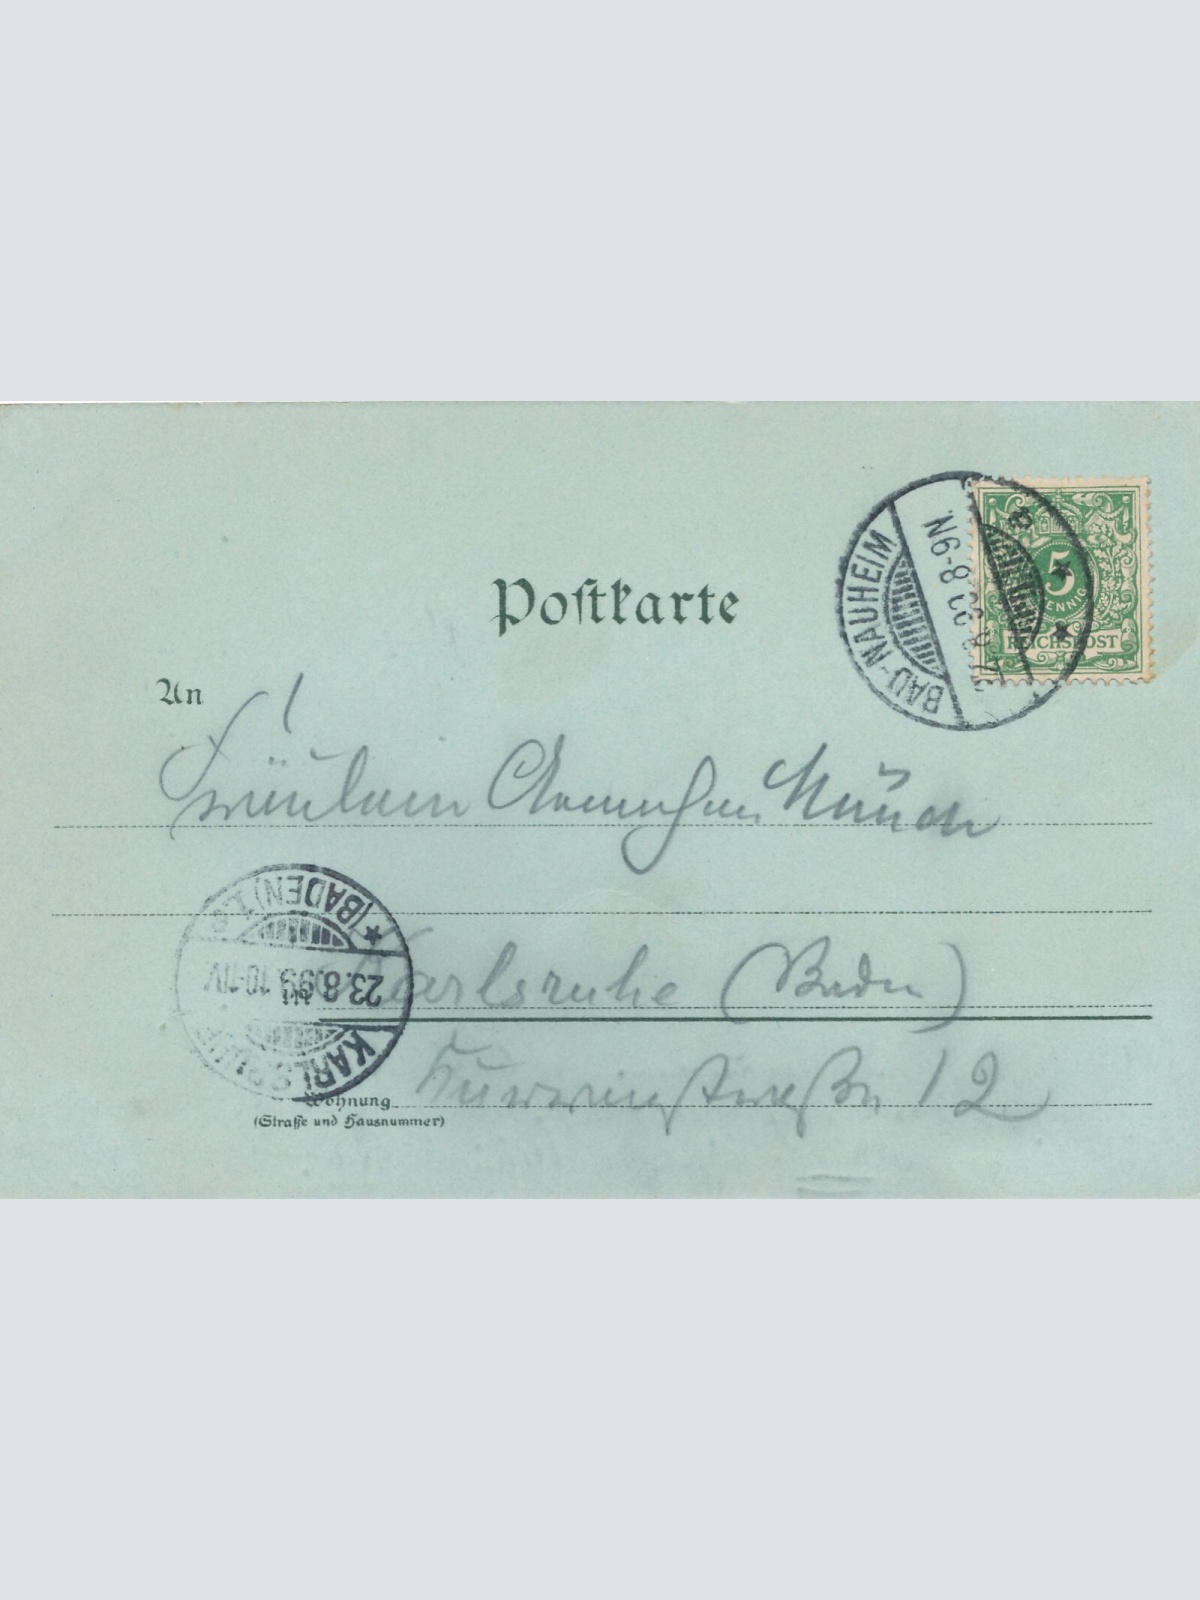 Postkarte
BAD-NAUHEIM
8-9N.
a
5
PFENNIG
REICHSPOST
An
Fräulein Münch
KARLSRUHE
(BADEN) 1.
23.8.99. 10-11V
Karlsruhe (Baden)
Wohnung 12
(Straße und Hausnummer)